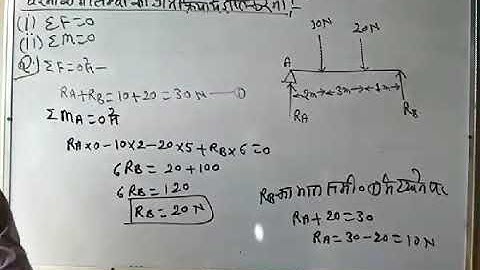 (i) ΣF=0
(ii) ΣM=0
Q. ΣF=0 से—
RA+RB=10+20=30N —①
ΣMA=0 से
RA×0-10×2-20×5+RB×6=0
6RB=20+100
6RB=120
RB=20N
10N 20N
A
2m 3m 1m
RA RB
RB का मान समी० ① में रखने पर
RA+20=30
RA=30-20=10N